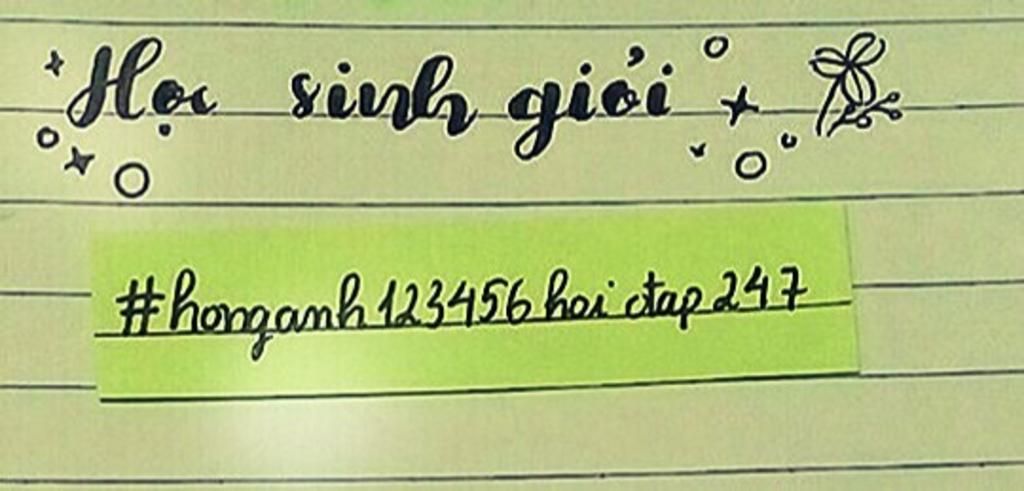 Học sinh giỏi
#honganh123456 hoi đtap 247